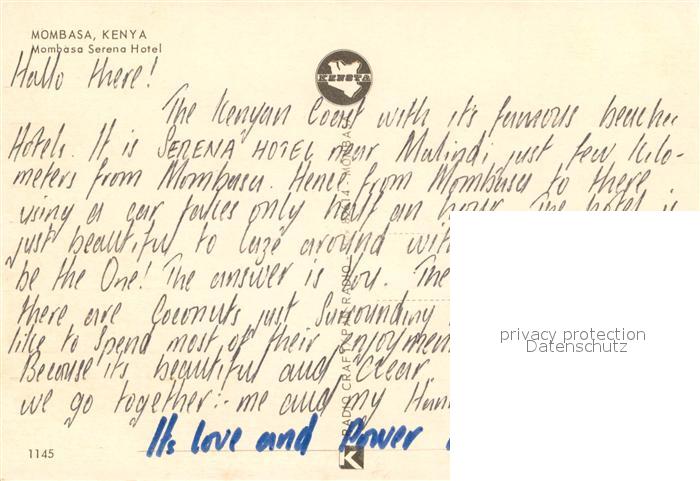 MOMBASA, KENYA
Mombasa Serena Hotel
KENSTA
Hallo there!
The Kenyan Coast with its famous beache
Hotels. It is SERENA HOTEL near Malindi just few kilo-
meters from Mombasa. Hence from Mombasa to there
using a car takes only half an hour. The hotel is
just beautiful to laze around with
be the One! The answer is You. The
there are Coconuts just Surrounding
like to spend most of their enjoymen
Because its beautiful and clear
we go together:- me and my Hun
Its love and Power
1145
RADIO CRAFTAPAK RADIO - MOMBASA
K
privacy protection
Datenschutz